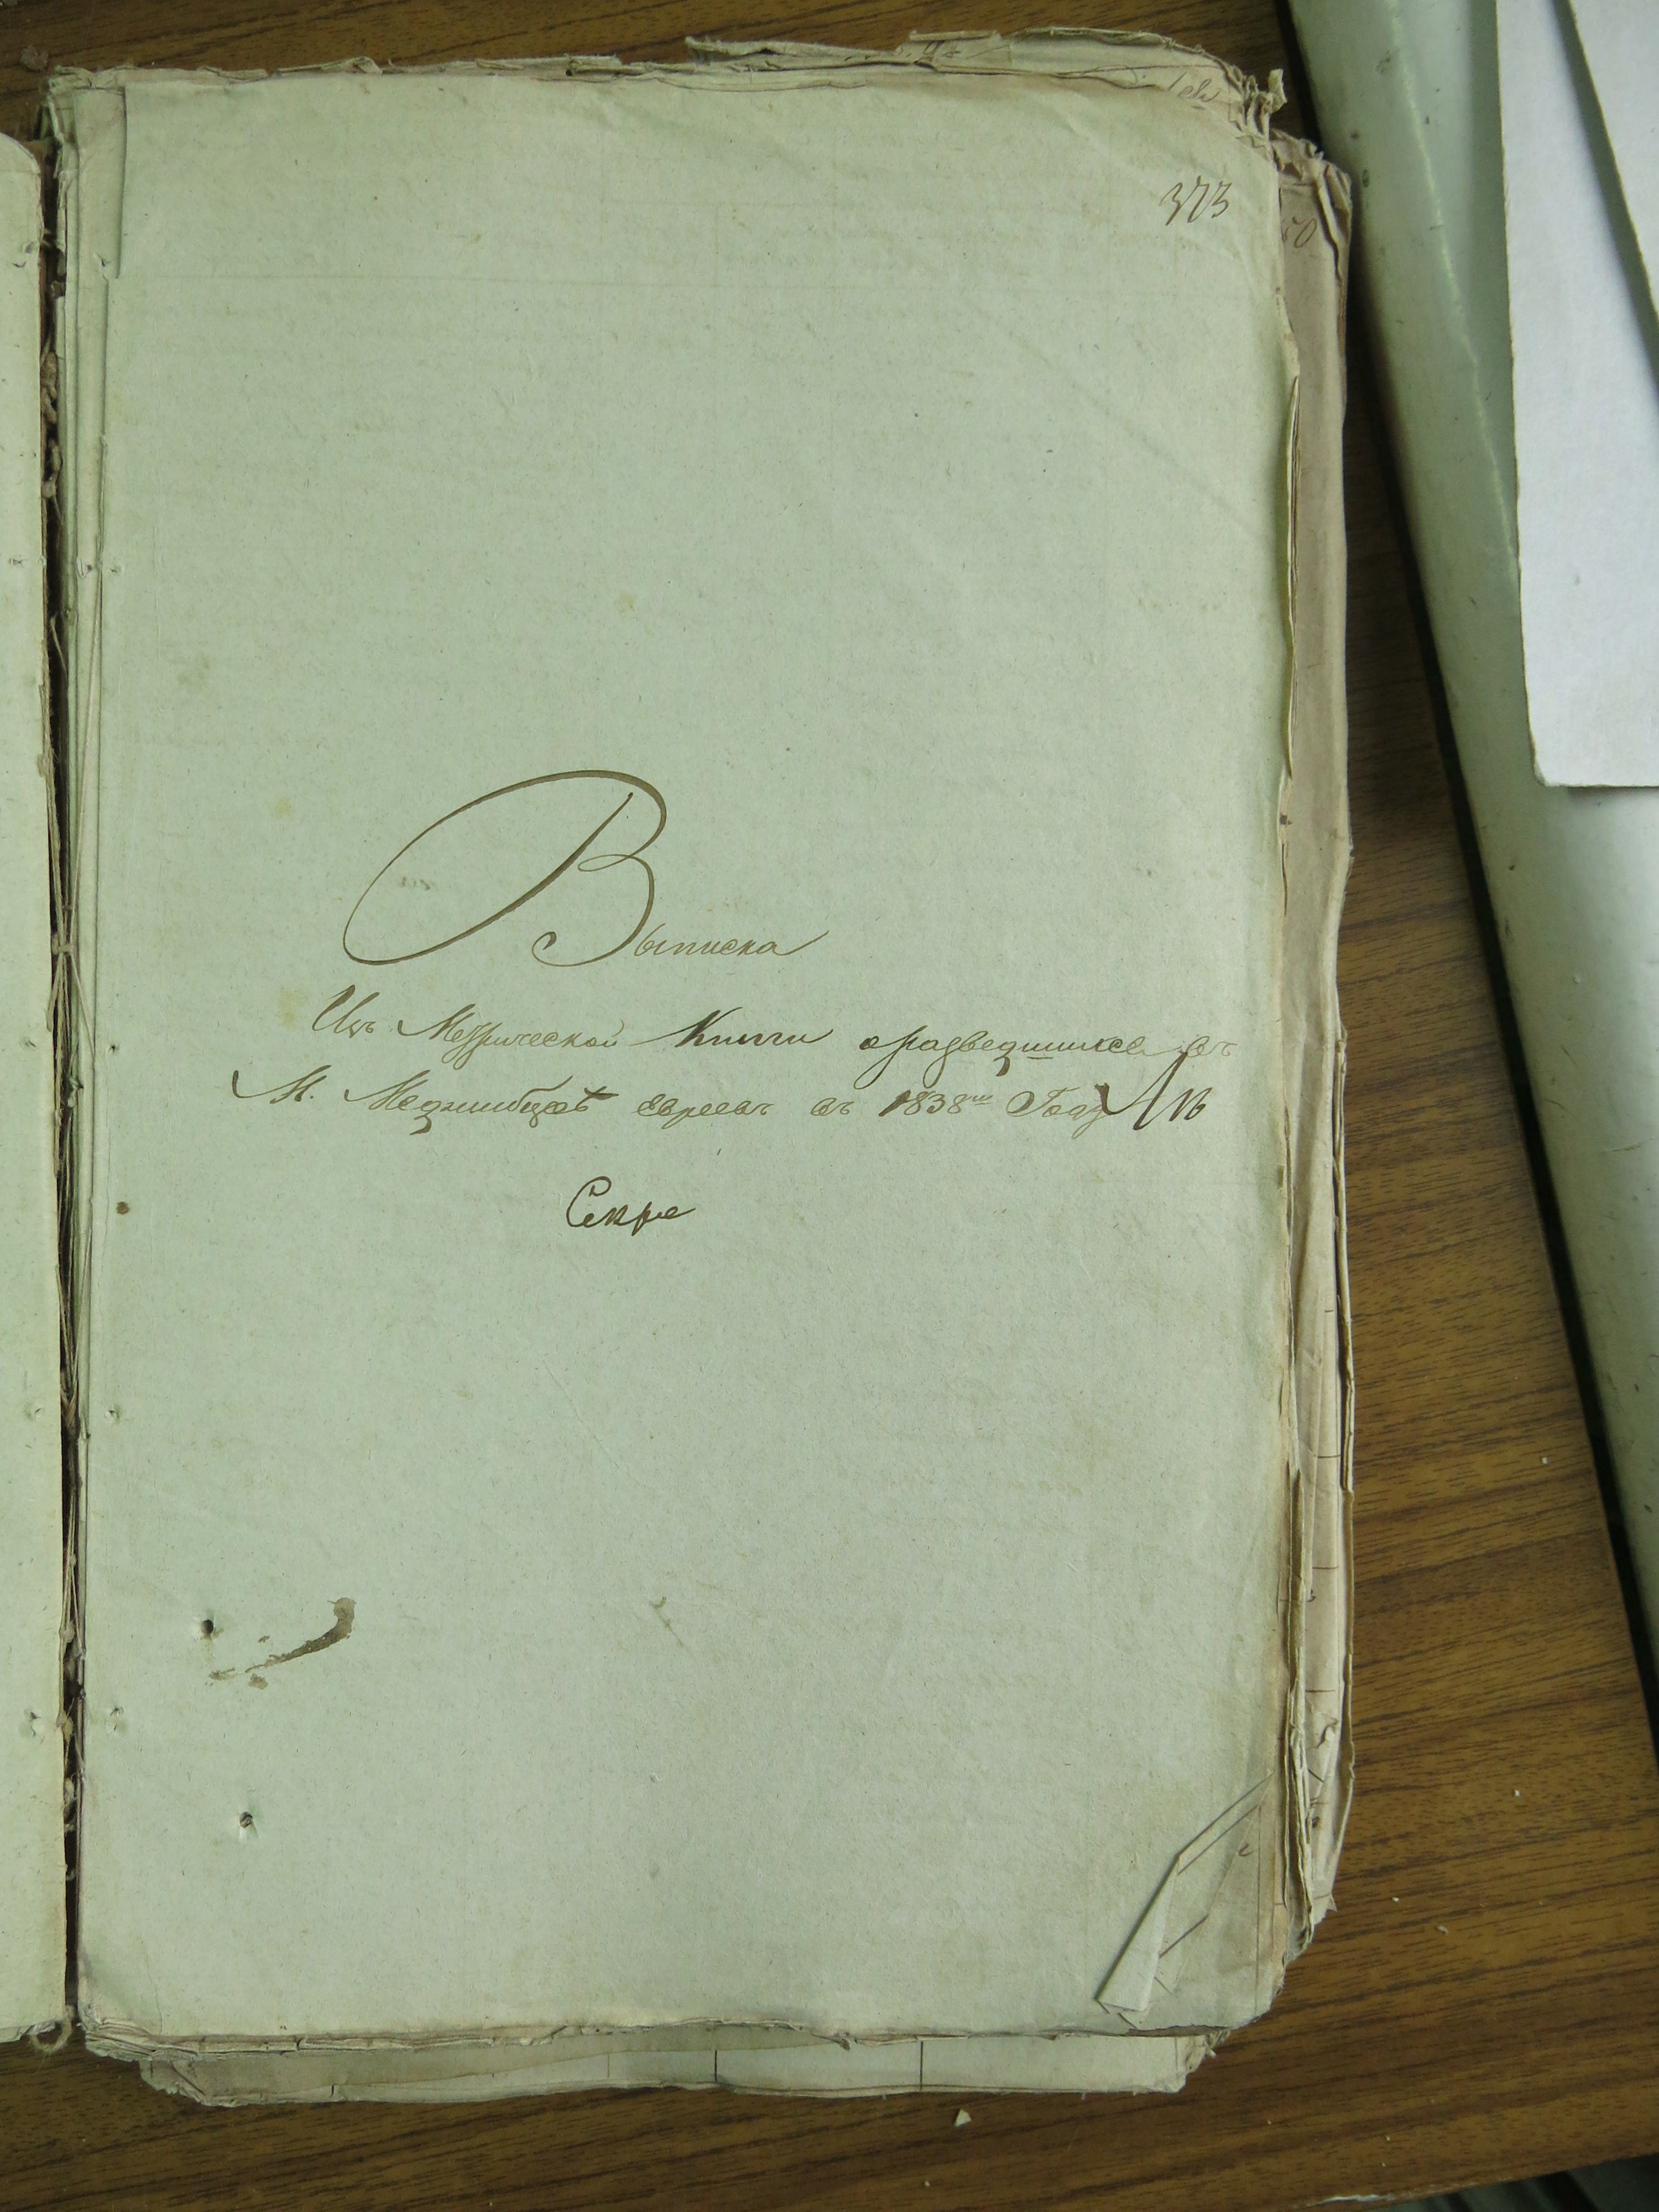 373
50
Выписка
Изъ Метрической Книги о разведшихся въ
М. Меджибужѣ евреевъ въ 1838мъ Году
Секре